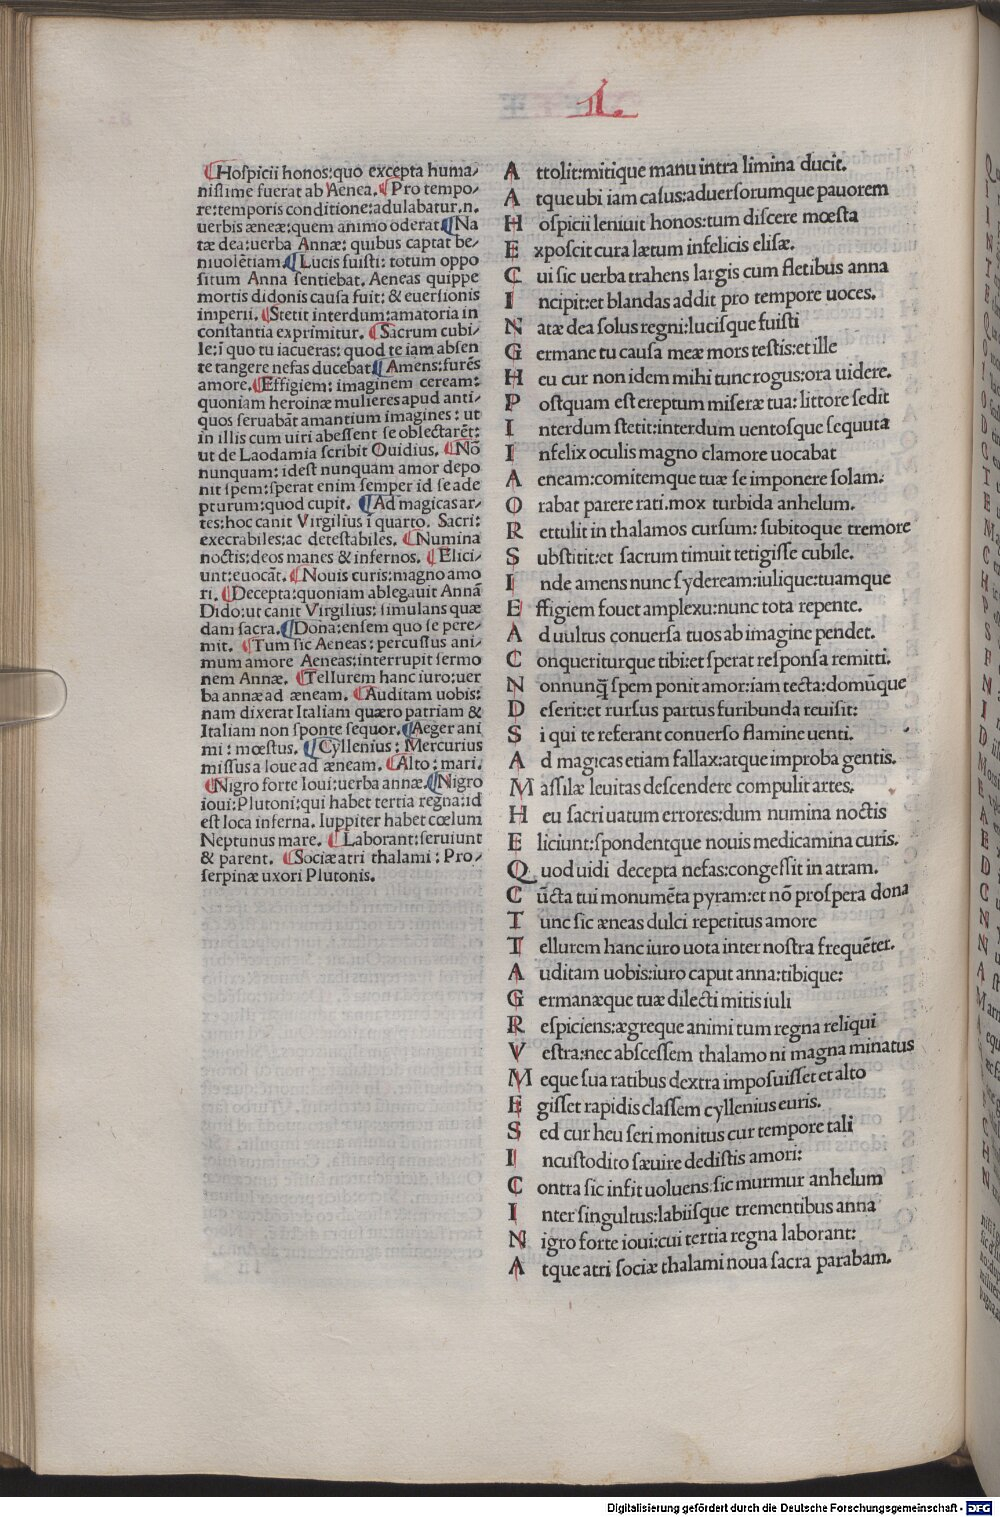 L.
¶Hoſpicii honos:quo excepta huma/
niſſime fuerat ab Aenea.¶Pro tempo/
re:temporis conditione:adulabatur.n.
uerbis æneæ:quem animo oderat¶Na
tæ dea:uerba Annæ: quibus captat be/
niuolētiam.¶Lucis fuiſti: totum oppo
ſitum Anna ſentiebat. Aeneas quippe
mortis didonis cauſa fuit: & euerſionis
imperii.¶Stetit interdum:amatoria in
conſtantia exprimitur. ¶Sacrum cubi/
le:ī quo tu iacueras: quod te iam abſen
te tangere nefas ducebat¶Amens:furēs
amore.¶Effigiem: imaginem ceream:
quoniam heroinæ mulieres apud anti/
quos ſeruabāt amantium imagines: ut
in illis cum uiri abeſſent ſe oblectarēt:
ut de Laodamia ſcribit Ouidius. ¶Nō
nunquam: ideſt nunquam amor depo
nit ſpem:ſperat enim ſemper id ſe ade
pturum:quod cupit. ¶Ad magicas ar/
tes:hoc canit Virgilius ī quarto. Sacri:
execrabiles:ac deteſtabiles. ¶Numina
noctis:deos manes & infernos. ¶Elici/
unt:euocāt.¶Nouis curis:magno amo
ri.¶Decepta:quoniam ablegauit Annā
Dido:ut canit Virgilius: ſimulans quæ
dam ſacra.¶Dona:enſem quo ſe pere/
mit. ¶Tum ſic Aeneas: percuſſus ani/
mum amore Aeneas:interrupit ſermo
nem Annæ. ¶Tellurem hanc iuro:uer
ba annæ ad æneam. ¶Auditam uobis:
nam dixerat Italiam quæro patriam &
Italiam non ſponte ſequor.¶Aeger ani
mi: mœſtus. ¶Cyllenius: Mercurius
miſſus a Ioue ad æneam. ¶Alto: mari.
¶Nigro forte Ioui:uerba annæ.¶Nigro
ioui:Plutoni:qui habet tertia regna:id
eſt loca inferna. Iuppiter habet cœlum
Neptunus mare. ¶Laborant:ſeruiunt
& parent. ¶Sociæ atri thalami: Pro/
ſerpinæ uxori Plutonis.
A ttolit:mitique manu intra limina ducit.
A tque ubi iam caſus:aduerſorumque pauorem
H oſpicii leniuit honos:tum diſcere mœſta
E xpoſcit cura lætum infelicis eliſæ.
C ui ſic uerba trahens largis cum fletibus anna
I ncipit:et blandas addit pro tempore uoces.
N atæ dea ſolus regni:luciſque fuiſti
G ermane tu cauſa meæ mors teſtis:et ille
H eu cur non idem mihi tunc rogus:ora uidere.
P oſtquam eſt ereptum miſeræ tua: littore ſedit
I nterdum ſtetit:interdum uentoſque ſequuta
I nfelix oculis magno clamore uocabat
A eneam:comitemque tuæ ſe imponere ſolam.
O rabat parere rati.mox turbida anhelum.
R ettulit in thalamos curſum: ſubitoque tremore
S ubſtitit:et ſacrum timuit tetigiſſe cubile.
I nde amens nunc ſydeream:iulique:tuamque
E ffigiem fouet amplexu:nunc tota repente.
A d uultus conuerſa tuos ab imagine pendet.
C onqueriturque tibi:et ſperat reſponſa remitti.
N onnunq̄ ſpem ponit amor:iam tecta:domūque
D eſerit:et rurſus partus furibunda reuiſit:
S i qui te referant conuerſo flamine uenti.
A d magicas etiam fallax:atque improba gentis.
M aſſilæ leuitas deſcendere compulit artes.
H eu ſacri uatum errores:dum numina noctis
E liciunt:ſpondentque nouis medicamina curis.
Q uod uidi decepta nefas:congeſſit in atram.
C ūcta tui monumēta pyram:et nō proſpera dona
T unc ſic æneas dulci repetitus amore
T ellurem hanc iuro uota inter noſtra frequētet.
A uditam uobis:iuro caput anna:tibique:
G ermanæque tuæ dilecti mitis iuli
R eſpiciens:ægreque animi tum regna reliqui
V eſtra:nec abſceſſem thalamo ni magna minatus
M eque ſua ratibus dextra impoſuiſſet et alto
E giſſet rapidis claſſem cyllenius euris.
S ed cur heu ſeri monitus cur tempore tali
I ncuſtodito ſæuire dediſtis amori:
C ontra ſic infit uoluens:ſic murmur anhelum
I nter ſingultus:labiiſque trementibus anna
N igro forte ioui:cui tertia regna laborant:
A tque atri ſociæ thalami noua ſacra parabam.
Digitalisierung gefördert durch die Deutsche Forschungsgemeinschaft - DFG